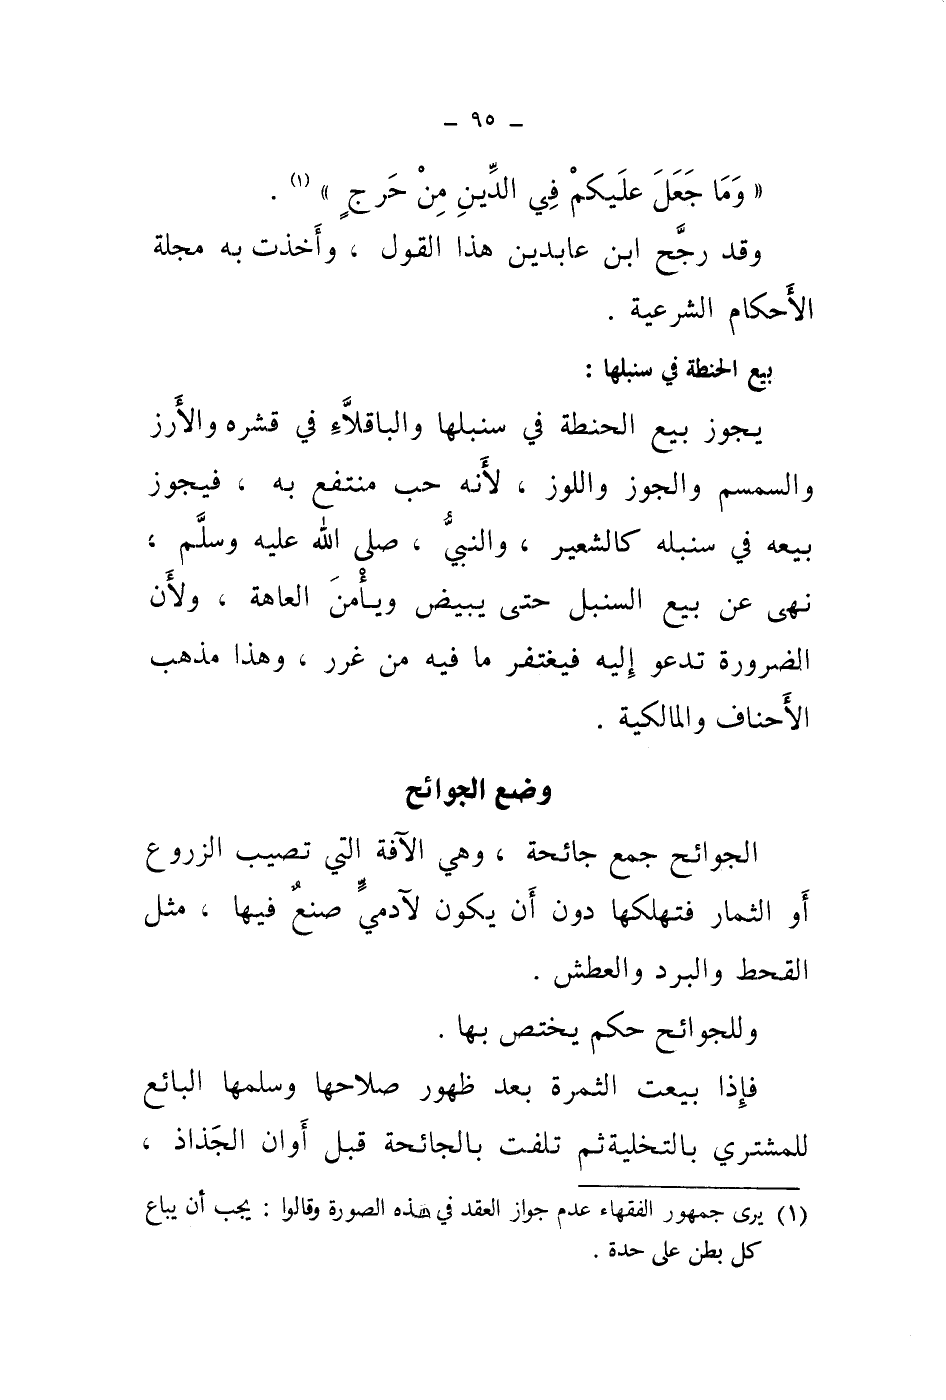 ـ ٩٥ ـ
« وَمَا جَعَلَ علَيكمْ فِي الدِّينِ مِنْ حَرجٍ » (١) .
وقد رجَّح ابن عابدين هذا القول ، وأَخذت به مجلة
الأَحكام الشرعية .
بيع الحنطة في سنبلها :
يجوز بيع الحنطة في سنبلها والباقلاَّءِ في قشره والأَرز
والسمسم والجوز واللوز ، لأَنه حب منتفع به ، فيجوز
بيعه في سنبله كالشعير ، والنبيُّ ، صلى الله عليه وسلَّم ،
نهى عن بيع السنبل حتى يبيض ويأْمنَ العاهة ، ولأَن
الضرورة تدعو إِليه فيغتفر ما فيه من غرر ، وهذا مذهب
الأَحناف والمالكية .
وضع الجوائح
الجوائح جمع جائحة ، وهي الآفة التي تصيب الزروع
أَو الثمار فتهلكها دون أَن يكون لآدميٍّ صنعٌ فيها ، مثل
القحط والبرد والعطش .
وللجوائح حكم يختص بها .
فإِذا بيعت الثمرة بعد ظهور صلاحها وسلمها البائع
للمشتري بالتخلية ثم تلفت بالجائحة قبل أَوان الجَذاذ ،
(١) يرى جمهور الفقهاء عدم جواز العقد في هذه الصورة وقالوا : يجب أن يباع
كل بطن على حدة .